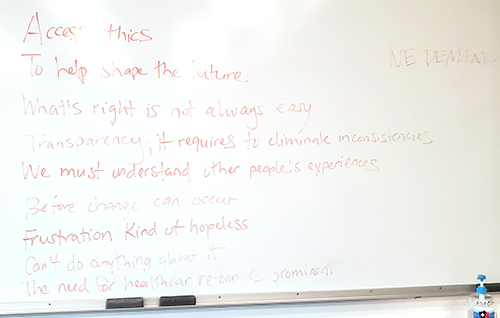 Access thics
To help shape the future
NE DEMAND
What's right is not always easy
Transparency, it requires to eliminate inconsistencies
We must understand other people's experiences
Before change can occur
Frustration Kind of hopeless
Can't do anything about it
The need for healthcar reform is prominent